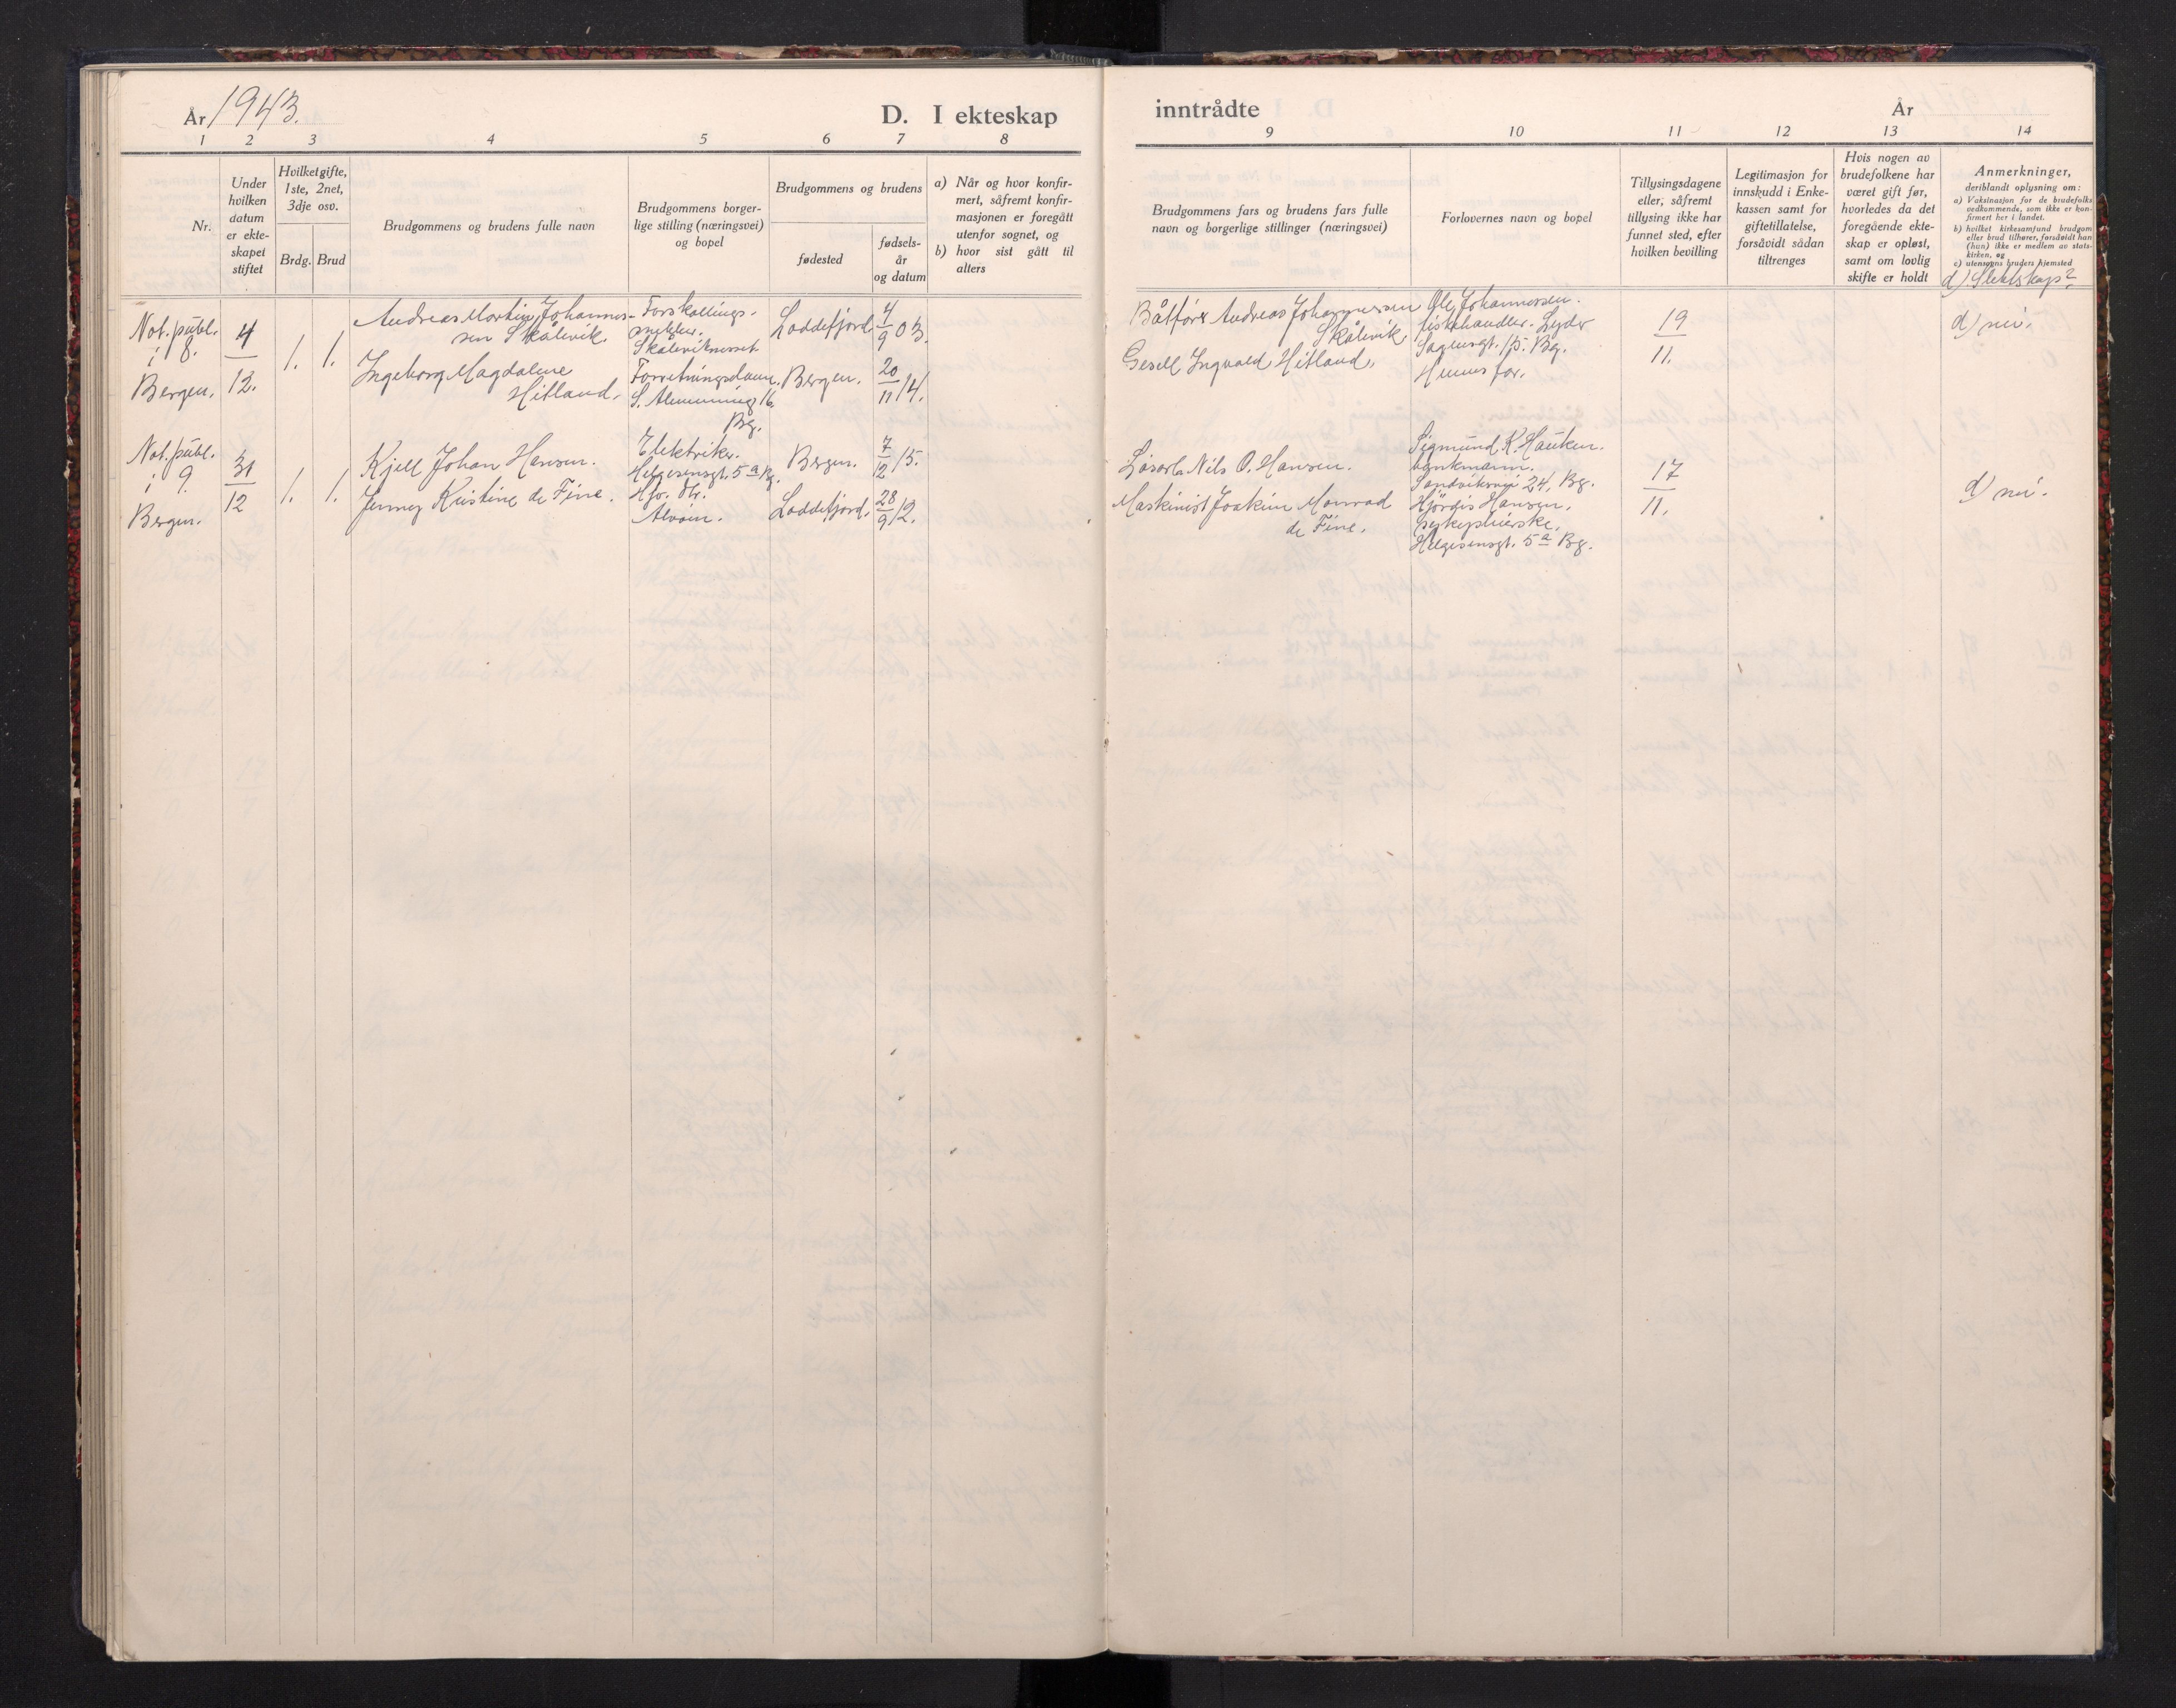 År 1943.
D. I ekteskap
inntrådte
År
1 2 3 4 5 6 7 8
9 10 11 12 13 14
Nr.
Under
hvilken
datum
er ekte-
skapet
stiftet
Hvilket gifte,
1ste, 2net,
3dje osv.
Brdg. Brud
Brudgommens og brudens fulle navn
Brudgommens borger-
lige stilling (næringsvei)
og bopel
Brudgommens og brudens
fødested
fødsels-
år
og datum
a) Når og hvor konfir-
mert, såfremt konfir-
masjonen er foregått
utenfor sognet, og
b) hvor sist gått til
alters
Brudgommens fars og brudens fars fulle
navn og borgerlige stillinger (næringsvei)
Forlovernes navn og bopel
Tillysingsdagene
eller, såfremt
tillysing ikke har
funnet sted, efter
hvilken bevilling
Legitimasjon for
innskudd i Enke-
kassen samt for
giftetillatelse,
forsåvidt sådan
tiltrenges
Hvis nogen av
brudefolkene har
været gift før,
hvorledes da det
foregående ekte-
skap er opløst,
samt om lovlig
skifte er holdt
Anmerkninger,
deriblandt oplysning om:
a) Vaksinasjon for de brudefolks
vedkommende, som ikke er kon-
firmert her i landet.
b) hvilket kirkesamfund brudgom
eller brud tilhører, forsåvidt han
(hun) ikke er medlem av stats-
kirken, og
c) utensogns bruders hjemsted
d) Slektskap?
Not. publ.
i 8.
Bergen.
4
12.
1. 1.
Andreas Martin Johannes-
sen Skålevik.
Ingeborg Magdalene
Hitland.
Forskallings-
snekker.
Skåleviknesset
Forretningsdame.
S. Almenning 16.
Bg.
Loddefjord
4
9 03.
Bergen.
20
11 14.
Båtfører Andreas Johannessen
Skålevik
Gesell Ingvald Hitland.
Ole Johannessen.
fiskehandler. Lyder
Sagensgt. 15. Bg.
Hennes far.
19
11.
d) nei.
Not. publ.
i 9.
Bergen.
31
12
1. 1.
Kjell Johan Hansen.
Jenny Kristine de Fine.
Elektriker.
Helgesensgt. 5a Bg.
Hfr. dtr.
Alvøen.
Bergen.
7
2 15.
Loddefjord.
28
9 12.
Løsarb. Nils O. Hansen.
Maskinist Joakim Monrad
de Fine.
Sigmund K. Hauken.
bankmann.
Sandviksvei 24, Bg.
Hjördis Hansen.
sykepleierske.
Helgesensgt. 5a Bg.
17
11.
d) nei.